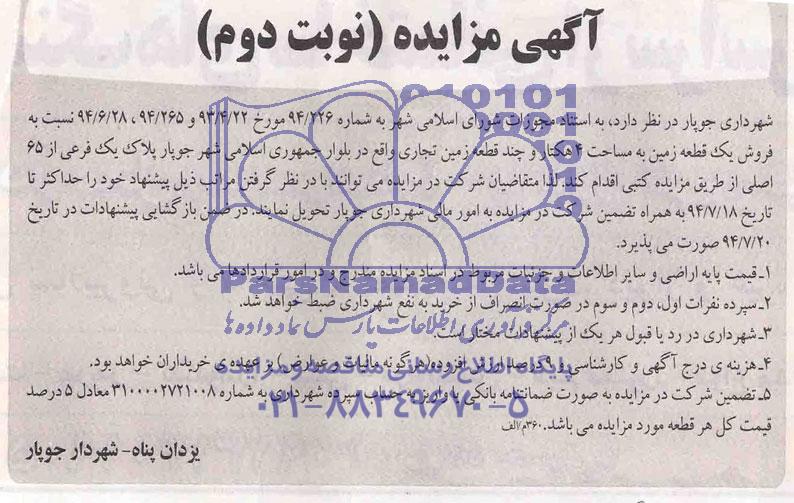 آگهی مزایده (نوبت دوم)
شهرداری جوپار در نظر دارد، به استناد مجوزات شورای اسلامی شهر به شماره ۹۴/۲۲۶ مورخ ۹۳/۴/۲۲ و ۹۴/۲۶۵ ، ۹۴/۶/۲۸ نسبت به
فروش یک قطعه زمین به مساحت ۴ هکتار و چند قطعه زمین تجاری واقع در بلوار جمهوری اسلامی شهر جوپار پلاک یک فرعی از ۶۵
اصلی از طریق مزایده کتبی اقدام کند. لذا متقاضیان شرکت در مزایده می توانند با در نظر گرفتن مراتب ذیل پیشنهاد خود را حداکثر تا
تاریخ ۹۴/۷/۱۸ به همراه تضمین شرکت در مزایده به امور مالی شهرداری جوپار تحویل نمایند. در ضمن بازگشایی پیشنهادات در تاریخ
۹۴/۷/۲۰ صورت می پذیرد.
۱ـ قیمت پایه اراضی و سایر اطلاعات و جزئیات مربوط در اسناد مزایده مندرج و در امور قراردادها می باشد.
۲ـ سپرده نفرات اول، دوم و سوم در صورت انصراف از خرید به نفع شهرداری ضبط خواهد شد.
۳ـ شهرداری در رد یا قبول هر یک از پیشنهادات مختار است.
۴ـ هزینه ی درج آگهی و کارشناسی و ۹ درصد ارزش افزوده (هرگونه مالیات و عوارض) بر عهده ی خریداران خواهد بود.
۵ـ تضمین شرکت در مزایده به صورت ضمانتنامه بانکی یا واریز به حساب سپرده شهرداری به شماره ۳۱۰۰۰۰۲۷۲۱۰۰۸ معادل ۵ درصد
قیمت کل هر قطعه مورد مزایده می باشد. ۳۶۰م/الف
یزدان پناه- شهردار جوپار
ParsNamadData
مرکز فرآوری اطلاعات پارس نماد داده ها
پایگاه اطلاع رسانی مناقصه و مزایده
۰۲۱-۸۸۳۴۹۶۷۰-۵